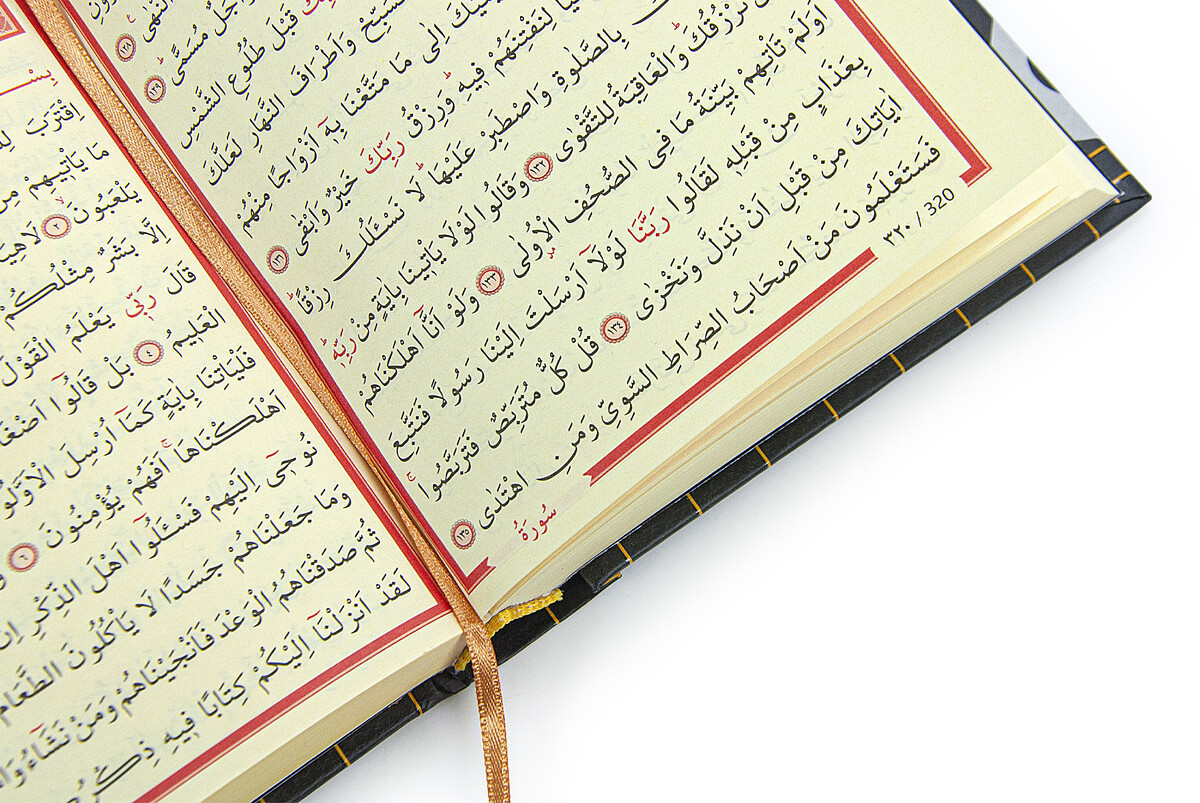 النُّهٰى ١٢٨
وَاَجَلٌ مُسَمًّى ١٢٩
قَبْلَ طُلُوعِ الشَّمْسِ
فَسَبِّحْ وَاَطْرَافَ النَّهَارِ لَعَلَّكَ
اِلٰى مَا مَتَّعْنَا بِهٖٓ اَزْوَاجًا مِنْهُمْ
لِنَفْتِنَهُمْ فٖيهِ وَرِزْقُ رَبِّكَ خَيْرٌ وَاَبْقٰى ١٣١
بِالصَّلٰوةِ وَاصْطَبِرْ عَلَيْهَا لَا نَسْـَٔلُكَ رِزْقًا
نَرْزُقُكَ وَالْعَاقِبَةُ لِلتَّقْوٰى ١٣٢ وَقَالُوا لَوْلَا يَأْتٖينَا بِاٰيَةٍ مِنْ رَبِّهٖ
اَوَلَمْ تَأْتِهِمْ بَيِّنَةُ مَا فِى الصُّحُفِ الْاُولٰى ١٣٣ وَلَوْ اَنَّٓا اَهْلَكْنَاهُمْ
بِعَذَابٍ مِنْ قَبْلِهٖ لَقَالُوا رَبَّنَا لَوْلَٓا اَرْسَلْتَ اِلَيْنَا رَسُولًا فَنَتَّبِعَ
اٰيَاتِكَ مِنْ قَبْلِ اَنْ نَذِلَّ وَنَخْزٰى ١٣٤ قُلْ كُلٌّ مُتَرَبِّصٌ فَتَرَبَّصُوا
فَسَتَعْلَمُونَ مَنْ اَصْحَابُ الصِّرَاطِ السَّوِيِّ وَمَنِ اهْتَدٰى ١٣٥
٣٢٠ / 320
سُورَةُ
بِسْ
اِقْتَرَبَ
مَا يَأْتٖيهِمْ مِنْ
يَلْعَبُونَ ٢ لَاهِيَةً
اِلَّا بَشَرٌ مِثْلُكُمْ
قَالَ رَبّٖى يَعْلَمُ الْقَوْلَ
الْعَلٖيمُ ٤ بَلْ قَالُٓوا
فَلْيَأْتِنَا بِاٰيَةٍ كَمَٓا اُرْسِلَ الْاَوَّلُونَ
اَهْلَكْنَاهَا اَفَهُمْ يُؤْمِنُونَ ٦
نُوحٖٓى اِلَيْهِمْ فَسْـَٔلُٓوا اَهْلَ الذِّكْرِ اِنْ
وَمَا جَعَلْنَاهُمْ جَسَدًا لَا يَأْكُلُونَ الطَّعَامَ
ثُمَّ صَدَقْنَاهُمُ الْوَعْدَ فَاَنْجَيْنَاهُمْ وَمَنْ نَشَٓاءُ
لَقَدْ اَنْزَلْنَٓا اِلَيْكُمْ كِتَابًا فٖيهِ ذِكْرُ